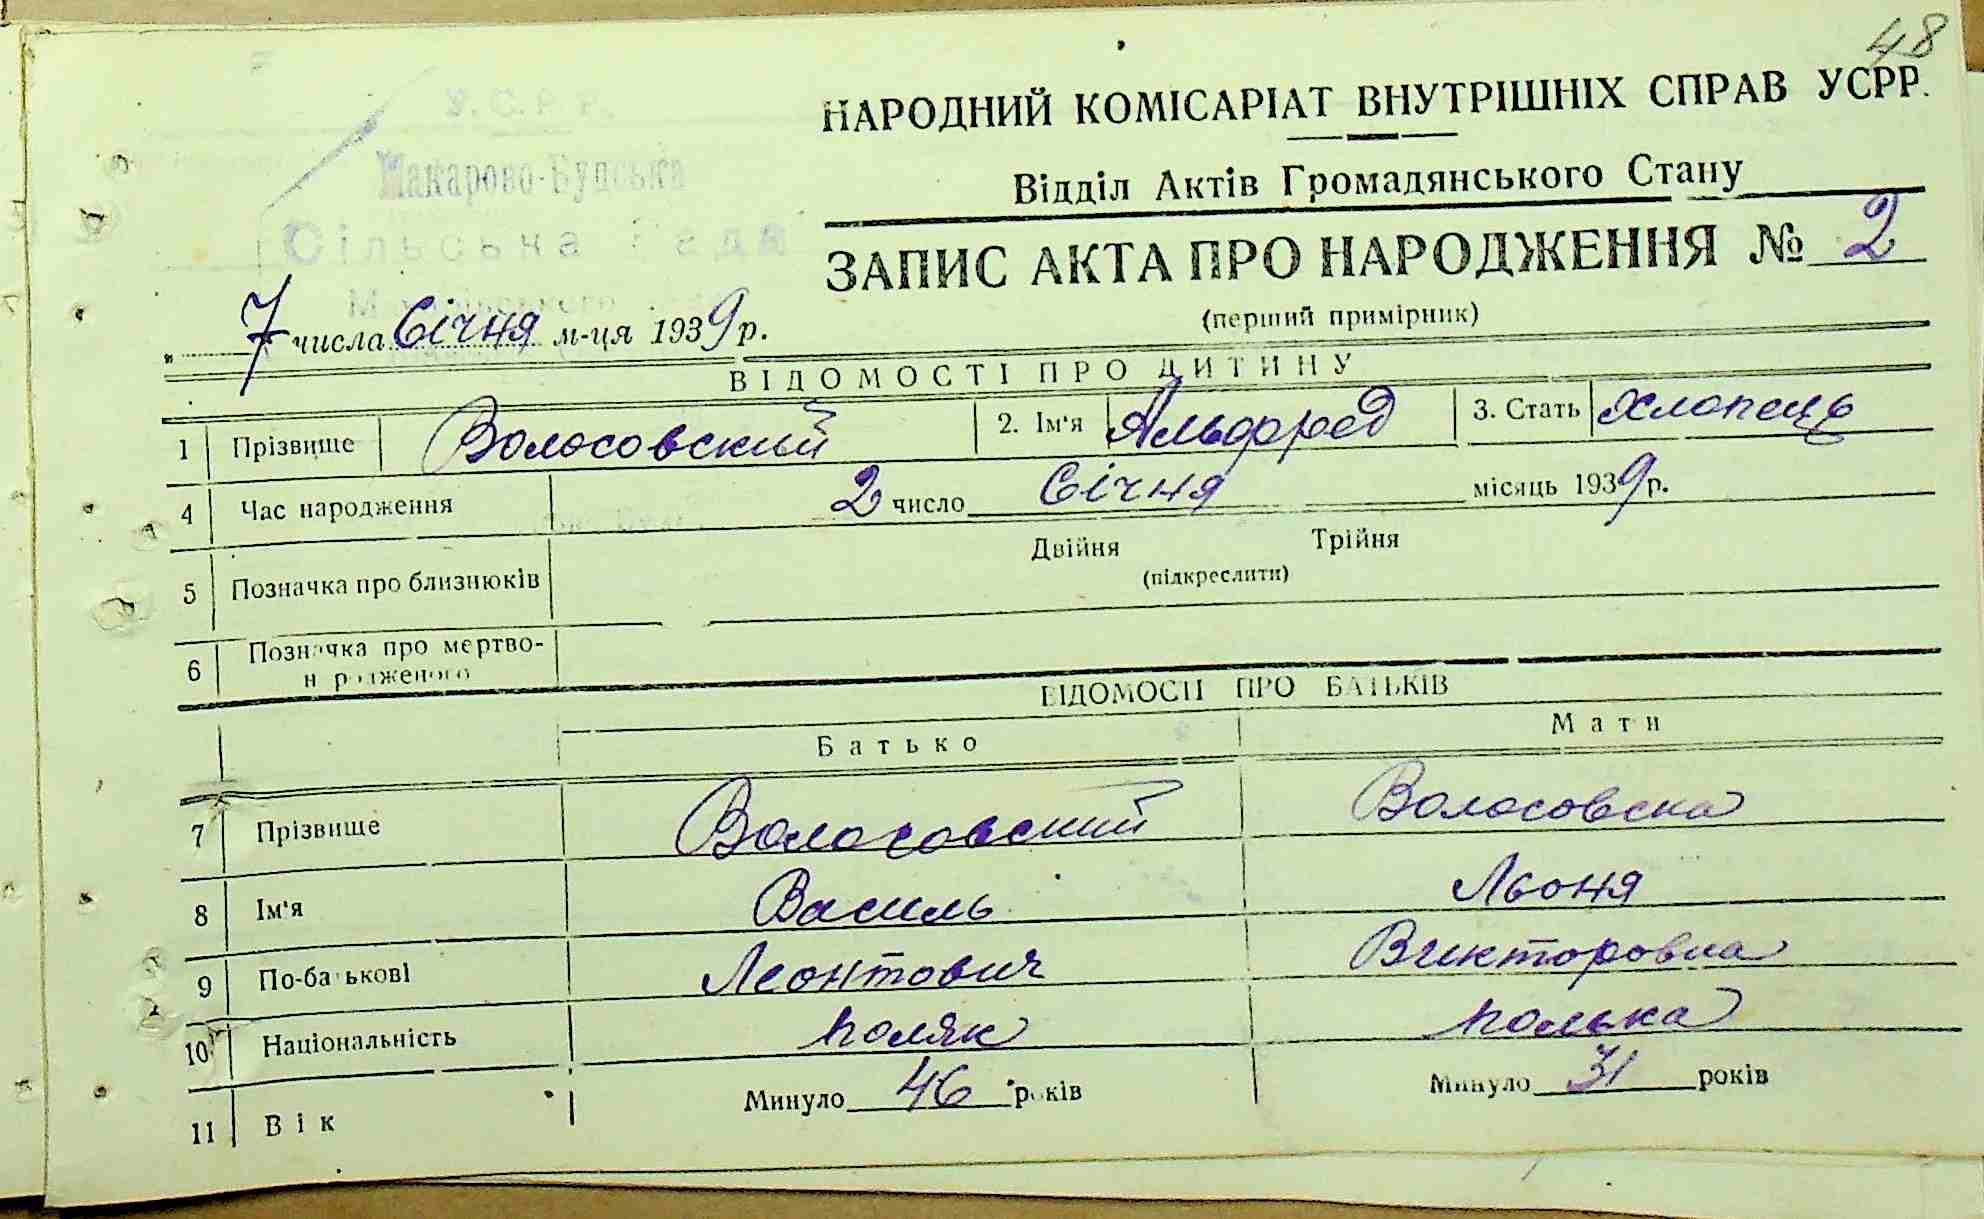 48
У.С.Р.Р.
НАРОДНИЙ КОМІСАРІАТ ВНУТРІШНІХ СПРАВ УСРР.
Макарово-Будська
Відділ Актів Громадянського Стану
Сільська Рада
ЗАПИС АКТА ПРО НАРОДЖЕННЯ № 2
(перший примірник)
„ 7 числа Січня м-ця 1939 р.
ВІДОМОСТІ ПРО ДИТИНУ
1 Прізвище Волосовский 2. Ім'я Альфред 3. Стать хлопець
4 Час народження 2 число Січня місяць 1939 р.
Двійня Трійня
5 Позначка про близнюків (підкреслити)
6 Позначка про мертво-
н родженого
ВІДОМОСТІ ПРО БАТЬКІВ
Батько Мати
7 Прізвище Волосовский Волосовска
8 Ім'я Василь Льоня
9 По-батькові Леонтович Викторовна
10 Національність поляк полька
11 Вік Минуло 46 років Минуло 31 років